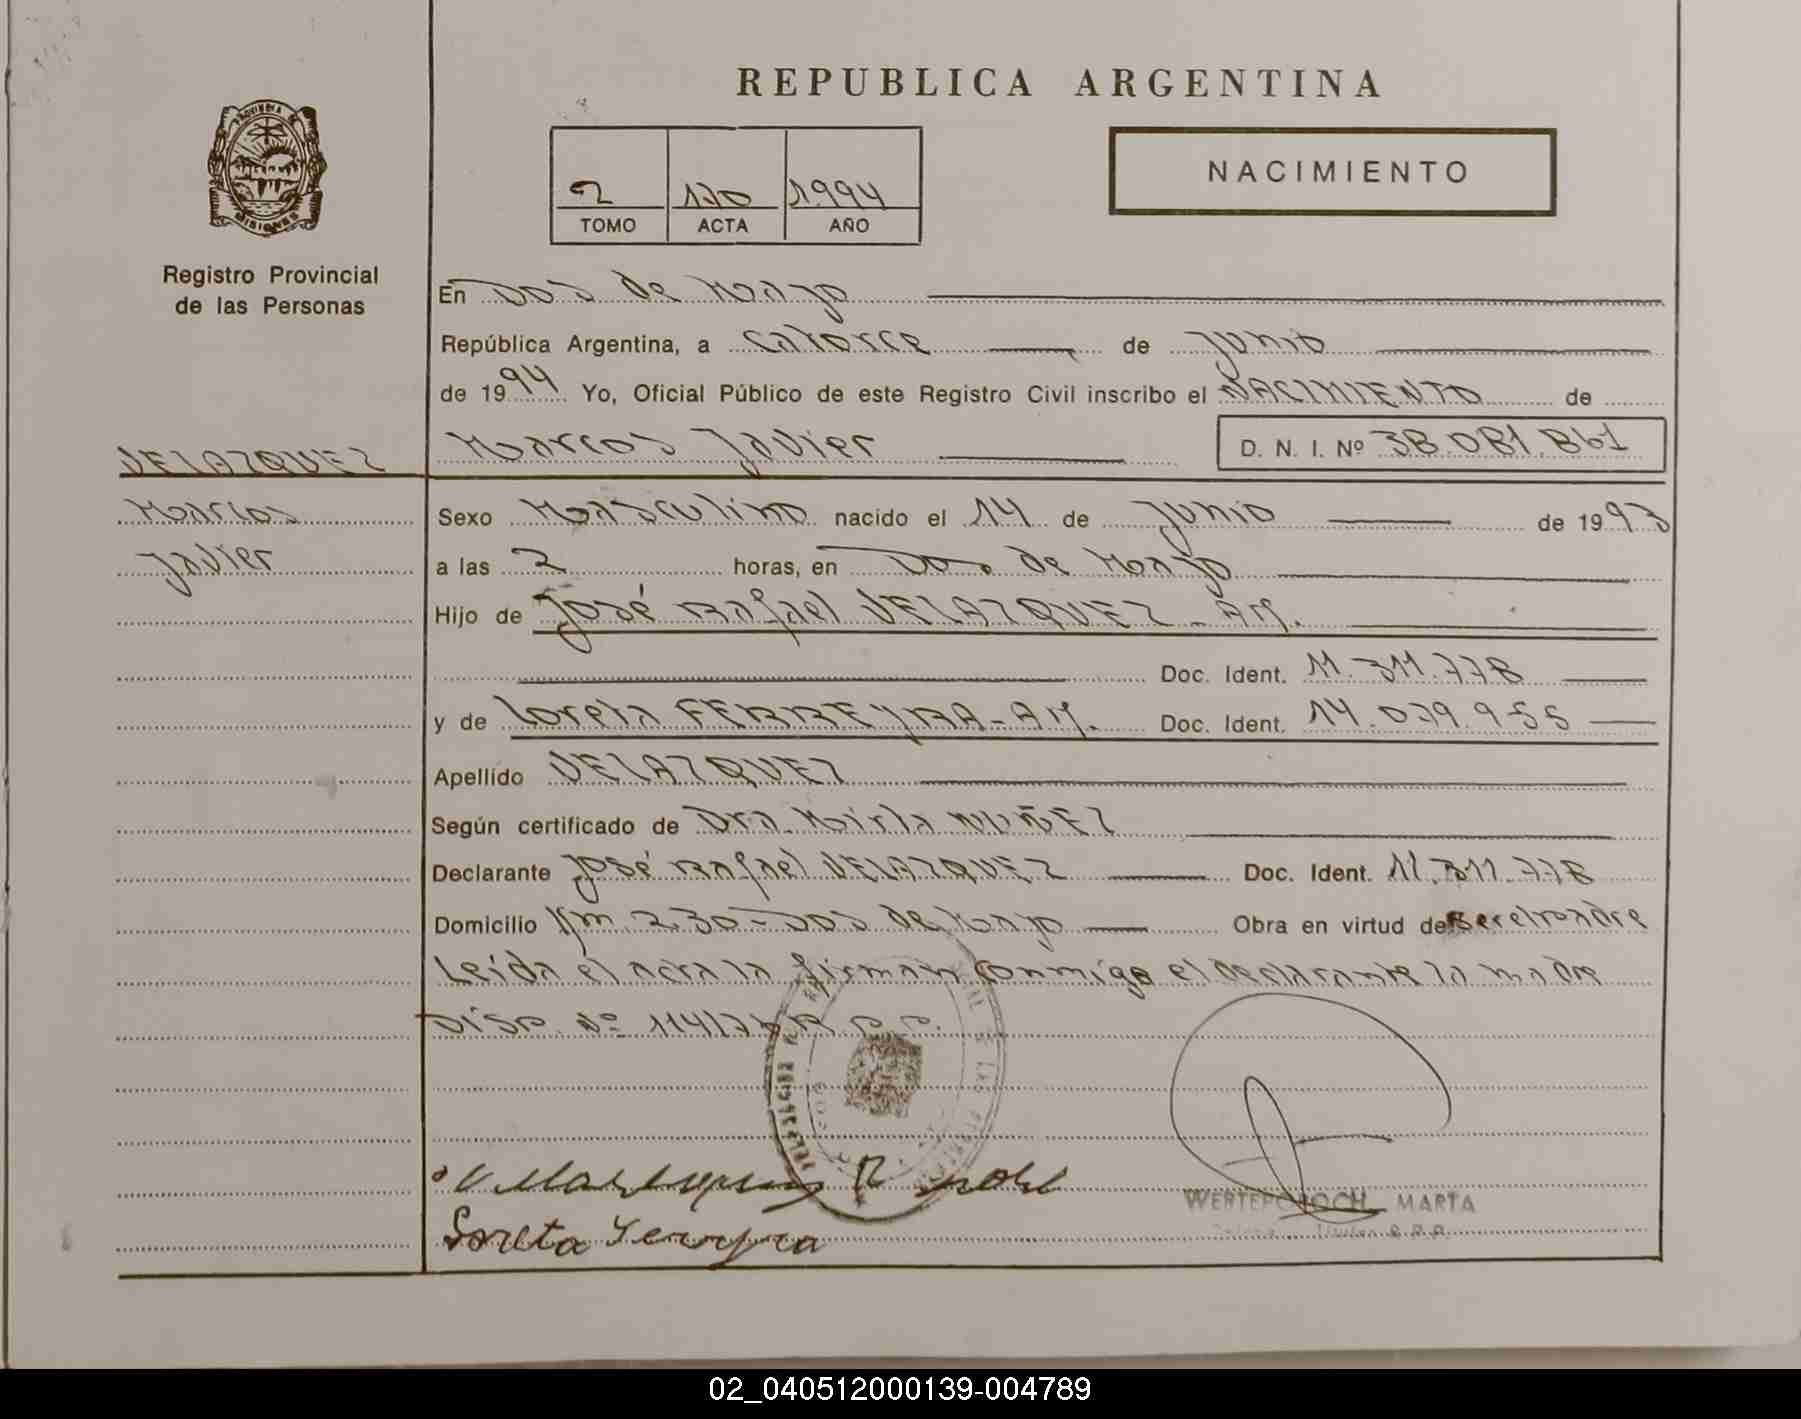 REPUBLICA ARGENTINA
PROVINCIA DE MISIONES
2 110 1994
TOMO ACTA AÑO
NACIMIENTO
Registro Provincial
de las Personas
En Dos de Mayo
República Argentina, a catorce de Junio
de 1994 Yo, Oficial Público de este Registro Civil inscribo el NACIMIENTO de
VELAZQUEZ
Marcos Javier D. N. I. Nº 38.081.861
Marcos
Javier
Sexo Masculino nacido el 14 de Junio de 1993
a las 2 horas, en Dos de Mayo
Hijo de José Rafael VELAZQUEZ - Arg.
Doc. Ident. 11.311.778
y de Loreta FERREYRA - Arg. Doc. Ident. 14.039.955
Apellido VELAZQUEZ
Según certificado de Dra. Mirta NUÑEZ
Declarante José Rafael VELAZQUEZ Doc. Ident. 11.311.778
Domicilio Km. 230 - Dos de Mayo Obra en virtud de ser el padre
Leida el acta la firman conmigo el declarante la madre
DISP. Nº 114/76 R.P.P.
Loreta Ferreyra
MARTA
02_040512000139-004789